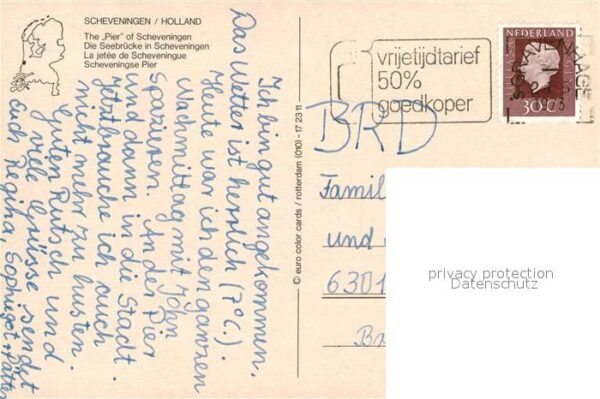 SCHEVENINGEN / HOLLAND
The „Pier" of Scheveningen
Die Seebrücke in Scheveningen
La jetée de Scheveningue
Scheveningse Pier
Ich bin gut angekommen.
Das Wetter ist herrlich (7°C.).
Heute war ich den ganzen
Nachmittag mit John
spazieren. An der Pier
und dann in die Stadt.
Jetzt brauche ich auch
nicht mehr zu husten.
Guten Rutsch und
viele Grüsse sendet
euch Regina,
© euro color cards / rotterdam (010) - 17 23 11
vrijetijdtarief
50%
goedkoper
NEDERLAND
30c
'S-GRAVENHAGE
BRD
Famil
und
6301
privacy protection
Datenschutz